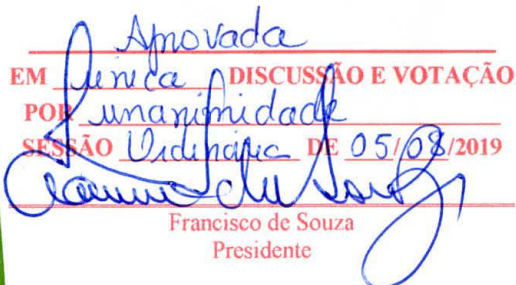 Aprovada
EM única DISCUSSÃO E VOTAÇÃO
POR unanimidade
SESSÃO Ordinária DE 05/08/2019
Francisco de Souza
Presidente